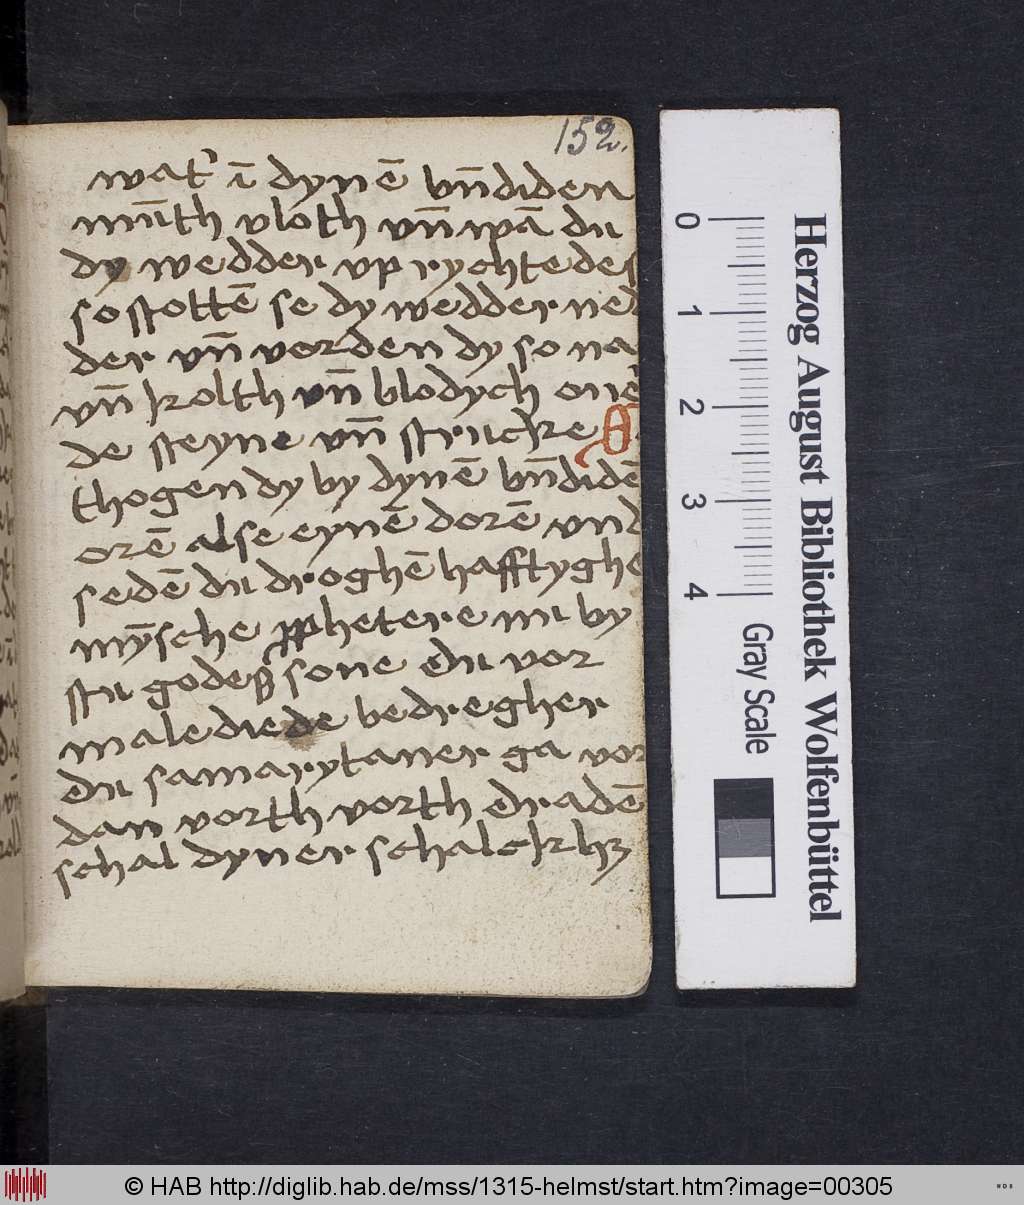 152.
wat' ī dynē bn̄diden
mūth vloth vn̄ wā du
dy wedder vp rychtedes
so stottē se dy wedder ned
der vn̄ vorden dy so na
vn̄ kolth vn̄ blodych ouer
de steyne vn̄ strucke
thogen dy by dynē bn̄didē
orē alse eynē dorē vnd
sedē du droghē hafftyghe
mȳsche ꝓphetere nu by
stu godeß sone du vor
malediede bedregher
du samarytaner ga vor
dan vorth vorth dradē
schal dyner schalckhꝫ
0 1 2 3 4
Gray Scale
Herzog August Bibliothek Wolfenbüttel
© HAB http://diglib.hab.de/mss/1315-helmst/start.htm?image=00305